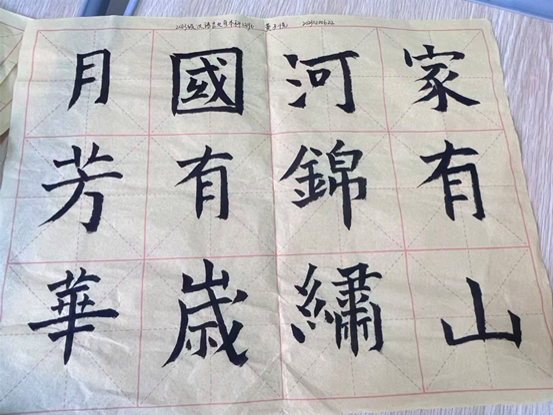 家有山
河錦繡
國有歲
月芳華